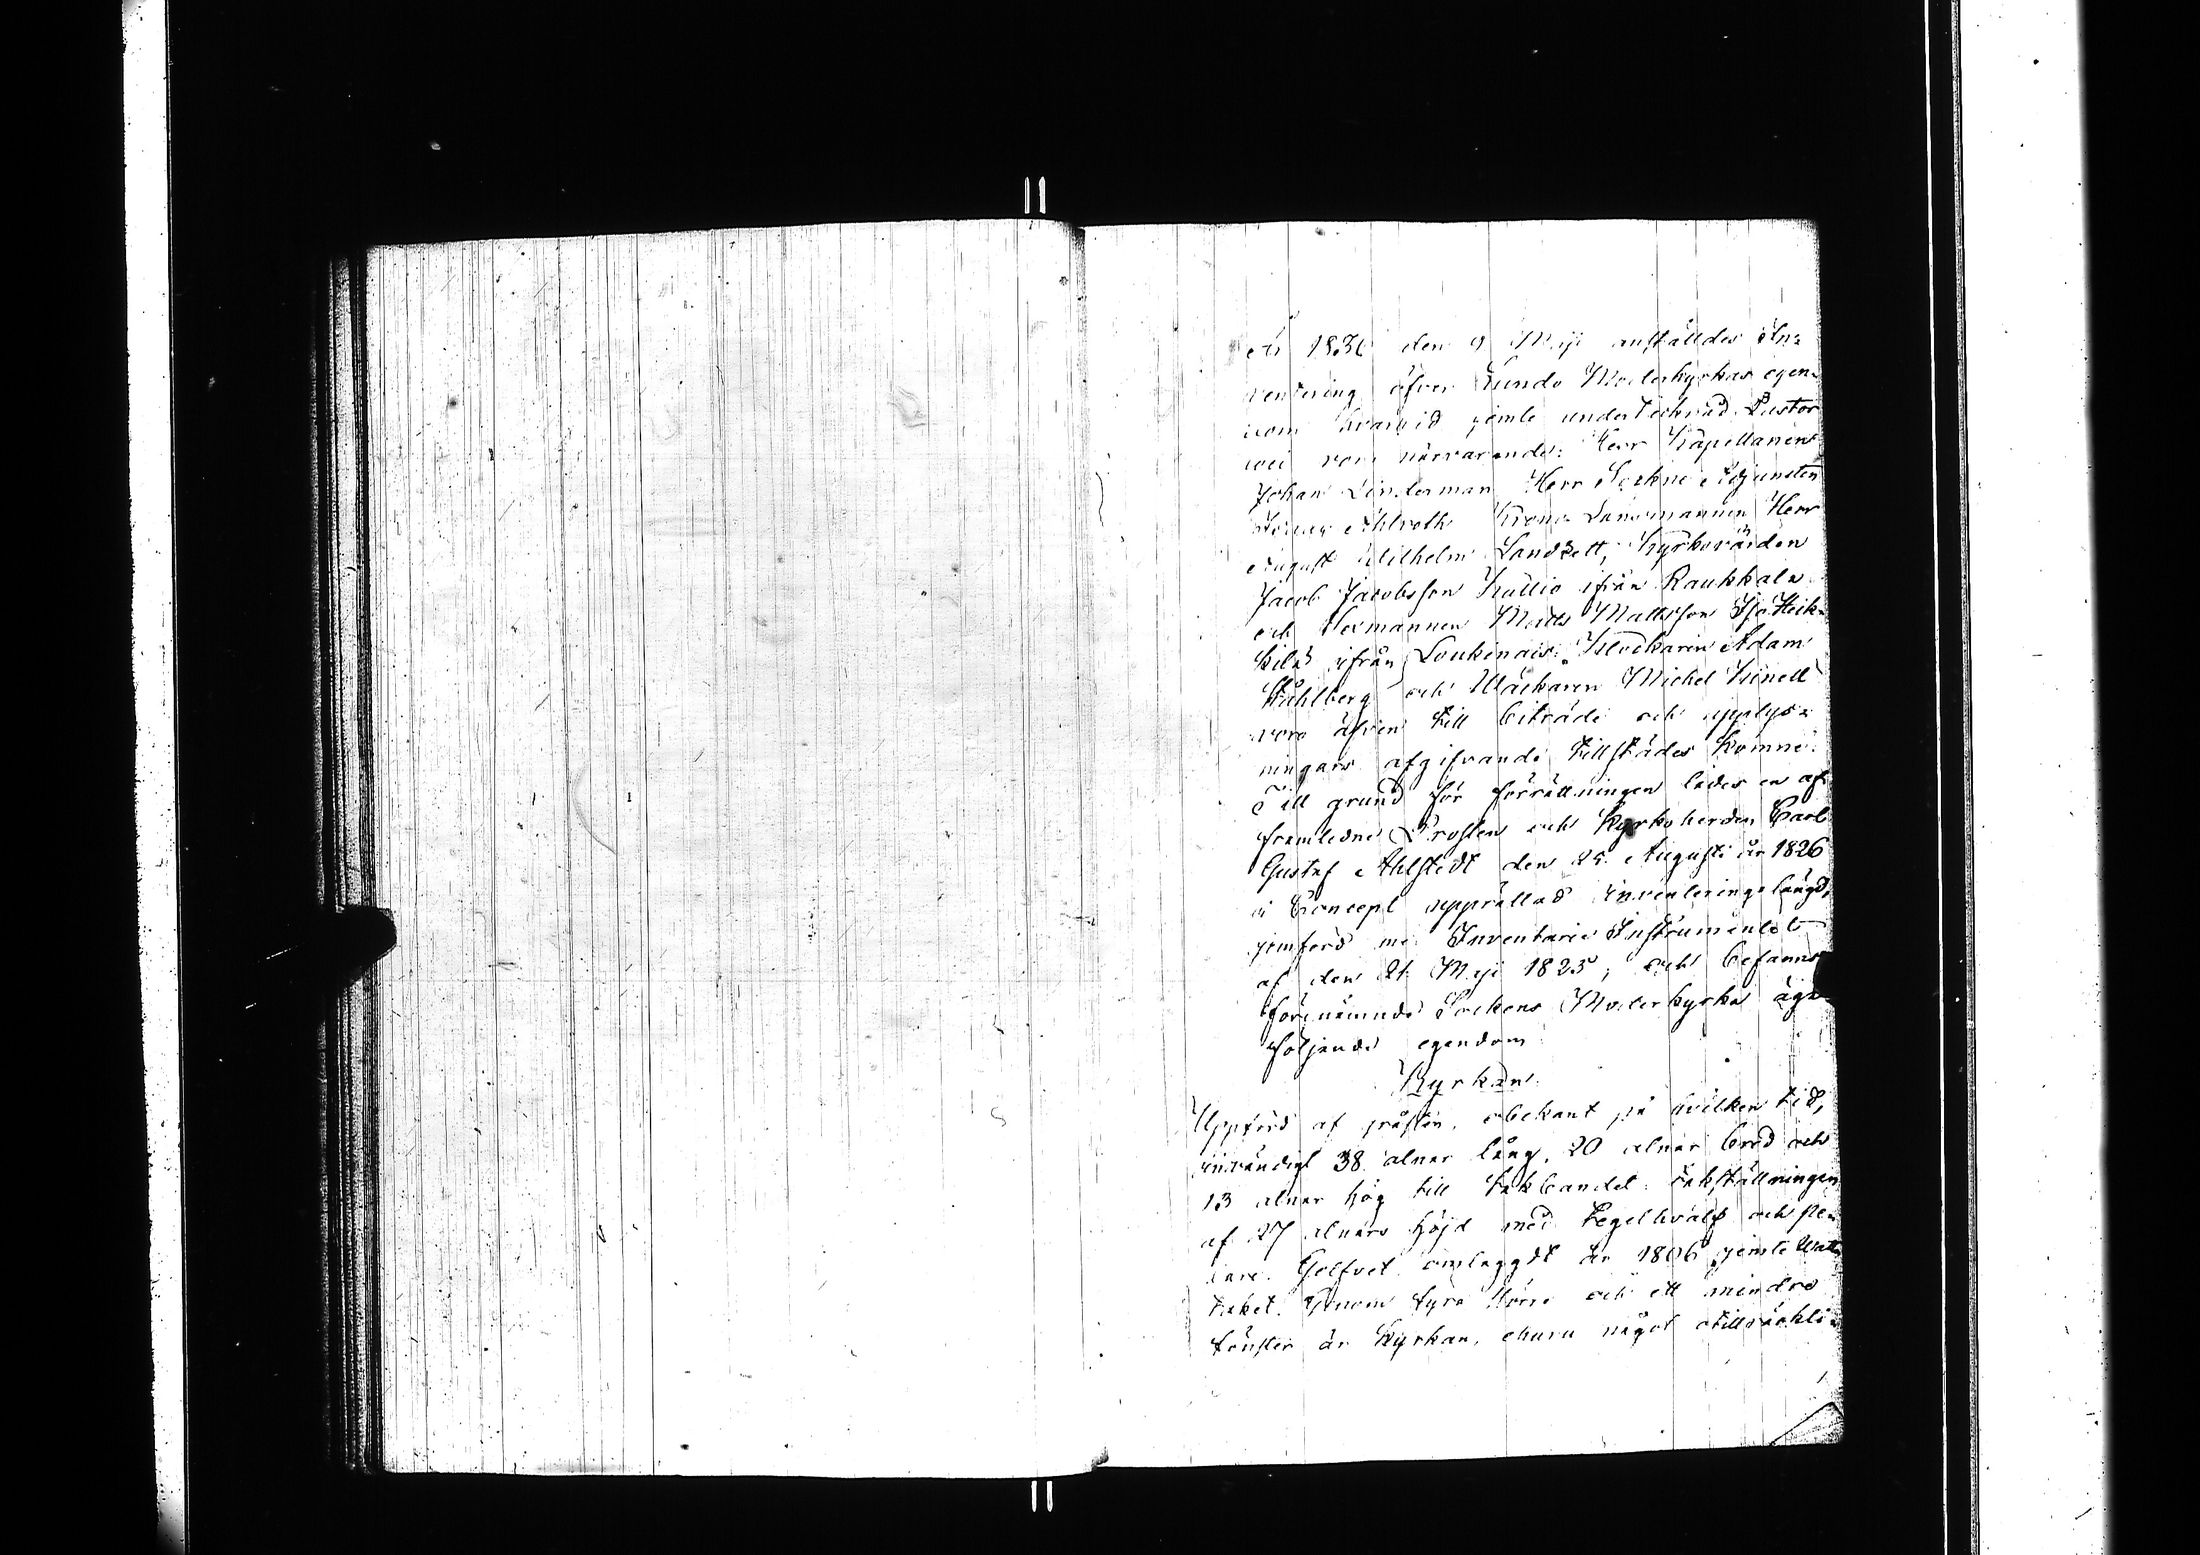 År 1836 den 9 Maji anstäldes In=
ventering öfver Lundo Moderkyrkas egen=
dom hvarvid jemte undertecknad Pastor
loci voro närvarande: Herr Kapellanen
Johan Linderman Herr Sockne Adjuncten
Ahlroth Krono Länsmannen Herr
August Wilhelm Landzett, Kyrkovärden
Jacob Jacobsson Kullio ifrån Raukkala
och Sexmannen Matts Mattsson Iso Heik=
kilä ifrån Loukinais. Klockaren Adam
Ståhlberg och Väckaren Michel Kinell
voro äfven till biträde och upplys=
ningars afgifvande tillstädes komne.
Till grund för förrättningen lades en af
framledne Prosten och Kyrkoherden Carl
Gustaf Ahlstedt den 25 Augusti år 1826
i Concept upprättad Inventerings längd,
jemförd med Inventarie Instrumentet
af den 21 Maji 1823, och befanns
förenämnde Sockens Moderkyrka äga
följande egendom
Kyrkan.
Uppförd af gråsten, obekant på hvilken tid,
invändigt 38 alnar lång, 20 alnar bred och
13 alnar hög till takbandet. Takställningen
af 27 alnars höjd med Tegelhvalf och pe=
lare. Golfvet omlaggdt år 1806 jemte Watt=
taket. Genom fyra större och ett mindre
fönster är Kyrkan, ehuru något otillräckli=